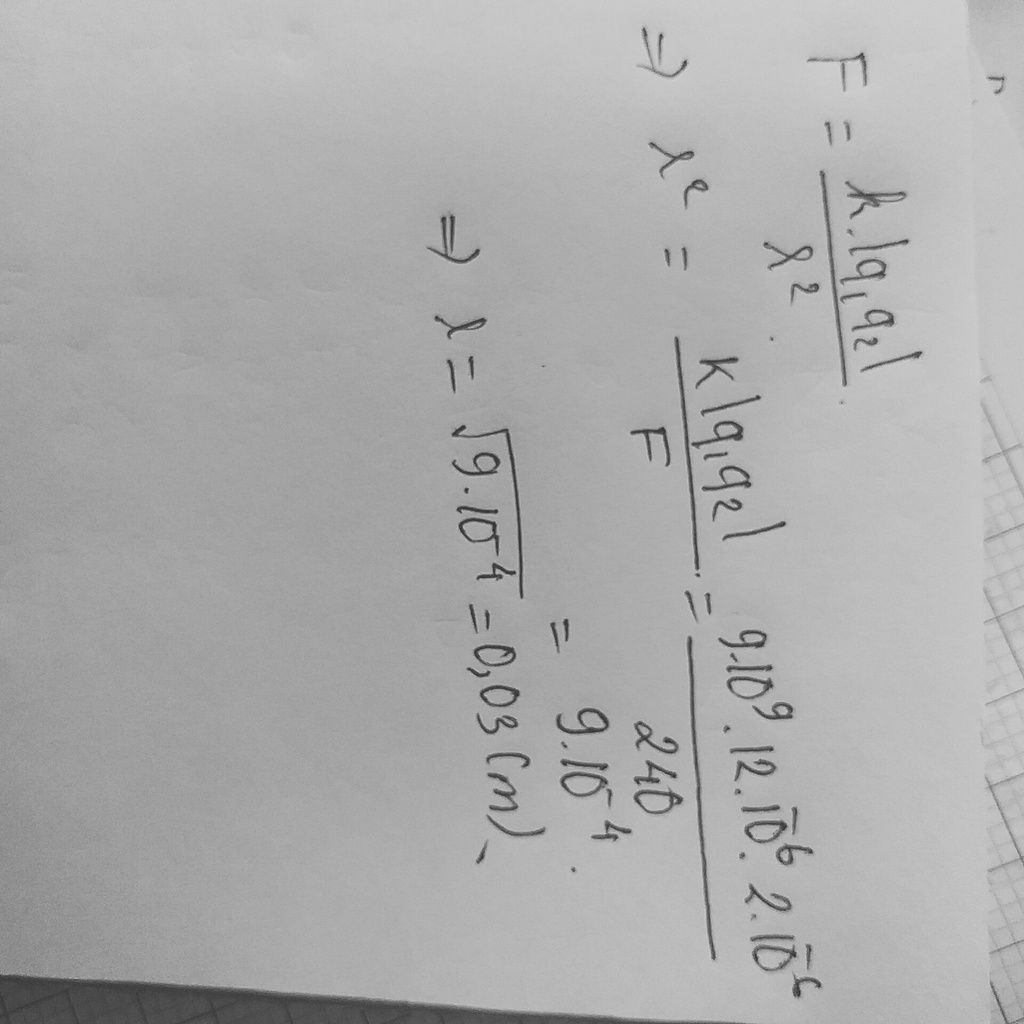 F = k.|q₁q₂| / r²
⇒ r² = k|q₁q₂| / F = 9.10⁹.12.10⁻⁶.2.10⁻⁶ / 240
= 9.10⁻⁴.
⇒ r = √9.10⁻⁴ = 0,03 (m)